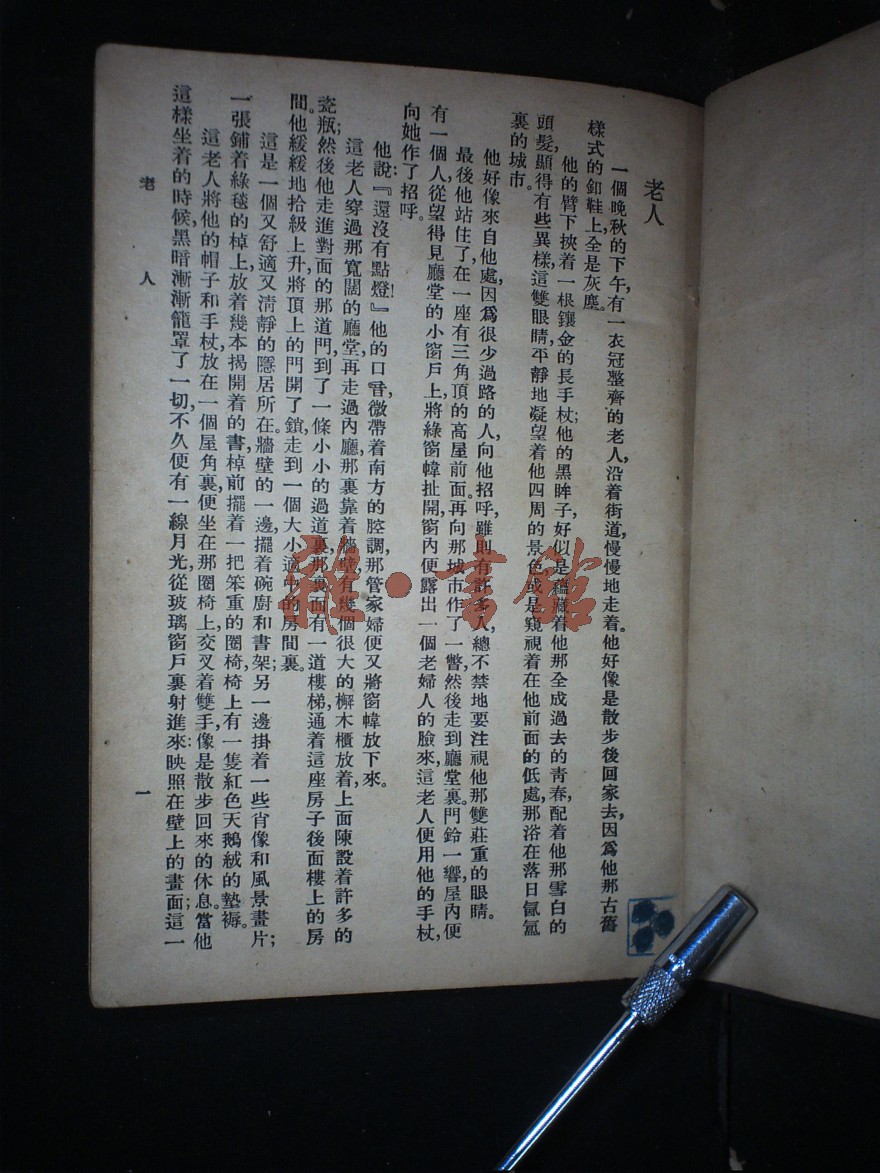 老人
一個晚秋的下午,有一衣冠整齊的老人,沿着街道,慢慢地走着。他好像是散步後回家去,因爲他那古舊
樣式的釦鞋上,全是灰塵。
他的臂下挾着一根鑲金的長手杖;他的黑眸子,好似是蘊藏着他那全成過去的青春,配着他那雪白的
頭髮,顯得有些異樣,這雙眼睛,平靜地凝望着他四周的景色,或是窺視着在他前面的低處,那浴在落日氤氳
裏的城市。
他好像來自他處,因爲很少過路的人向他招呼,雖則有許多人,總不禁地要注視他那雙莊重的眼睛。
最後他站住了,在一座有三角頂的高屋前面,再向那城市作了一瞥,然後走到廳堂裏。門鈴一響,屋內便
有一個人,從望得見廳堂的小窗戶上,將綠窗幃扯開,窗內便露出一個老婦人的臉來,這老人便用他的手杖,
向她作了招呼。
他說:『還沒有點燈!』他的口音微帶着南方的腔調,那管家婦便又將窗幃放下來。
這老人穿過那寬闊的廳堂,再走過內廳,那裏靠着牆壁,有幾個很大的槲木櫃放着,上面陳設着許多的
瓷瓶;然後他走進對面的那道門,到了一條小小的過道裏,那裏面有一道樓梯,通着這座房子後面樓上的房
間。他緩緩地拾級上升,將頂上的門開了鎖,走到一個大小適中的房間裏。
這是一個又舒適又清靜的隱居所在。牆壁的一邊,擺着碗廚和書架;另一邊掛着一些肖像和風景畫片;
一張鋪着綠毯的棹上,放着幾本揭開着的書,棹前擺着一把笨重的圈椅,椅上有一隻紅色天鵝絨的墊褥。
這老人將他的帽子和手杖放在一個屋角裏,便坐在那圈椅上,交叉着雙手,像是散步回來的休息。當他
這樣坐着的時候,黑暗漸漸籠罩了一切,不久便有一線月光,從玻璃窗戶裏射進來,映照在壁上的畫面;這一
老人
一
雜·書館